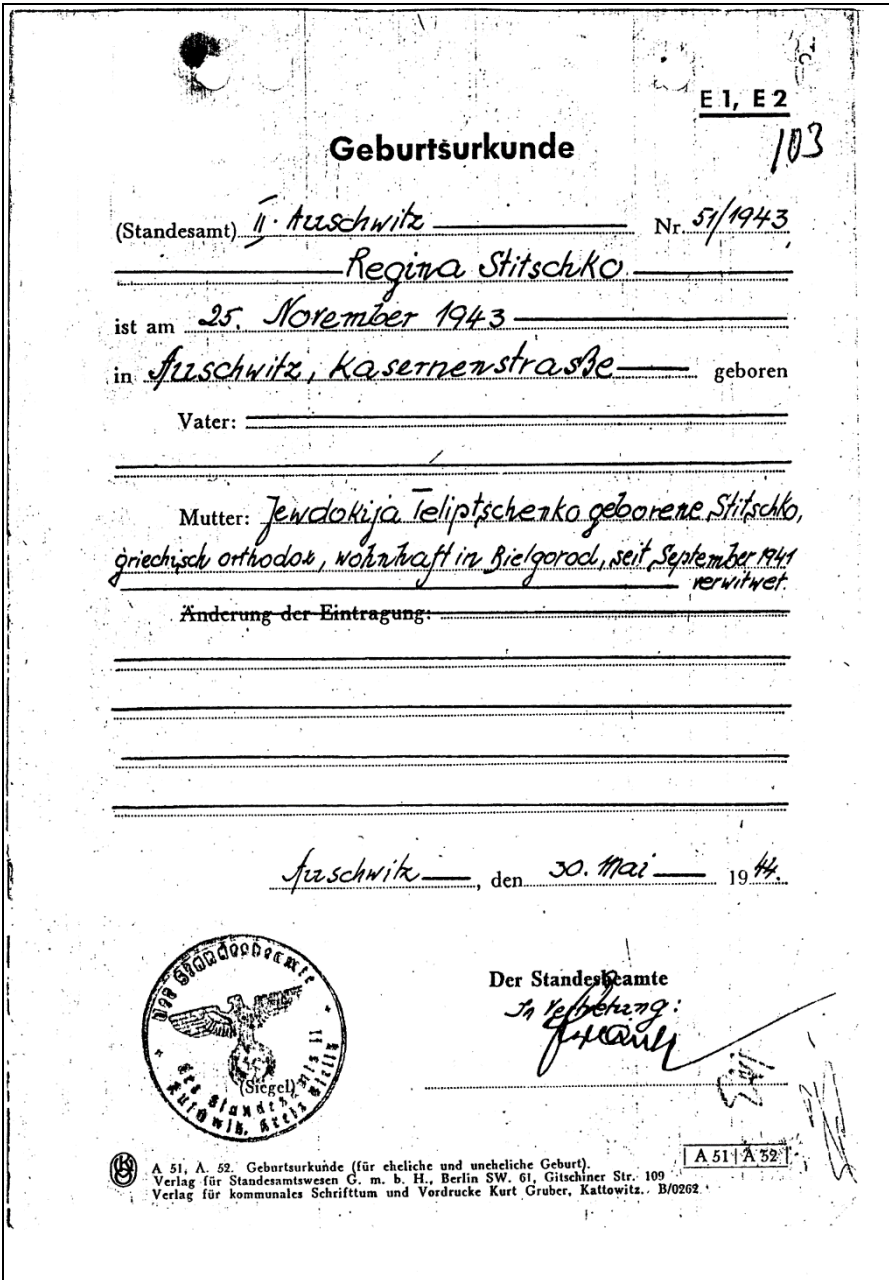 E 1, E 2
103
Geburtsurkunde
(Standesamt) II. Auschwitz Nr. 51/1943
Regina Stitschko
ist am 25. November 1943
in Auschwitz, Kasernenstraße geboren
Vater:
Mutter: Jewdokija Teliptschenko geborene Stitschko,
griechisch orthodox, wohnhaft in Bielgorod, seit September 1941
verwitwet.
Änderung der Eintragung:
Auschwitz, den 30. Mai 1944.
Der Standesbeamte
In Vertretung:
Der Standesbeamte
des Standesamts II
Auschwitz, Kreis Bielitz
(Siegel)
A 51 A 52
A 51, A. 52. Geburtsurkunde (für eheliche und uneheliche Geburt).
Verlag für Standesamtswesen G. m. b. H., Berlin SW. 61, Gitschiner Str. 109
Verlag für kommunales Schrifttum und Vordrucke Kurt Gruber, Kattowitz. B/0262